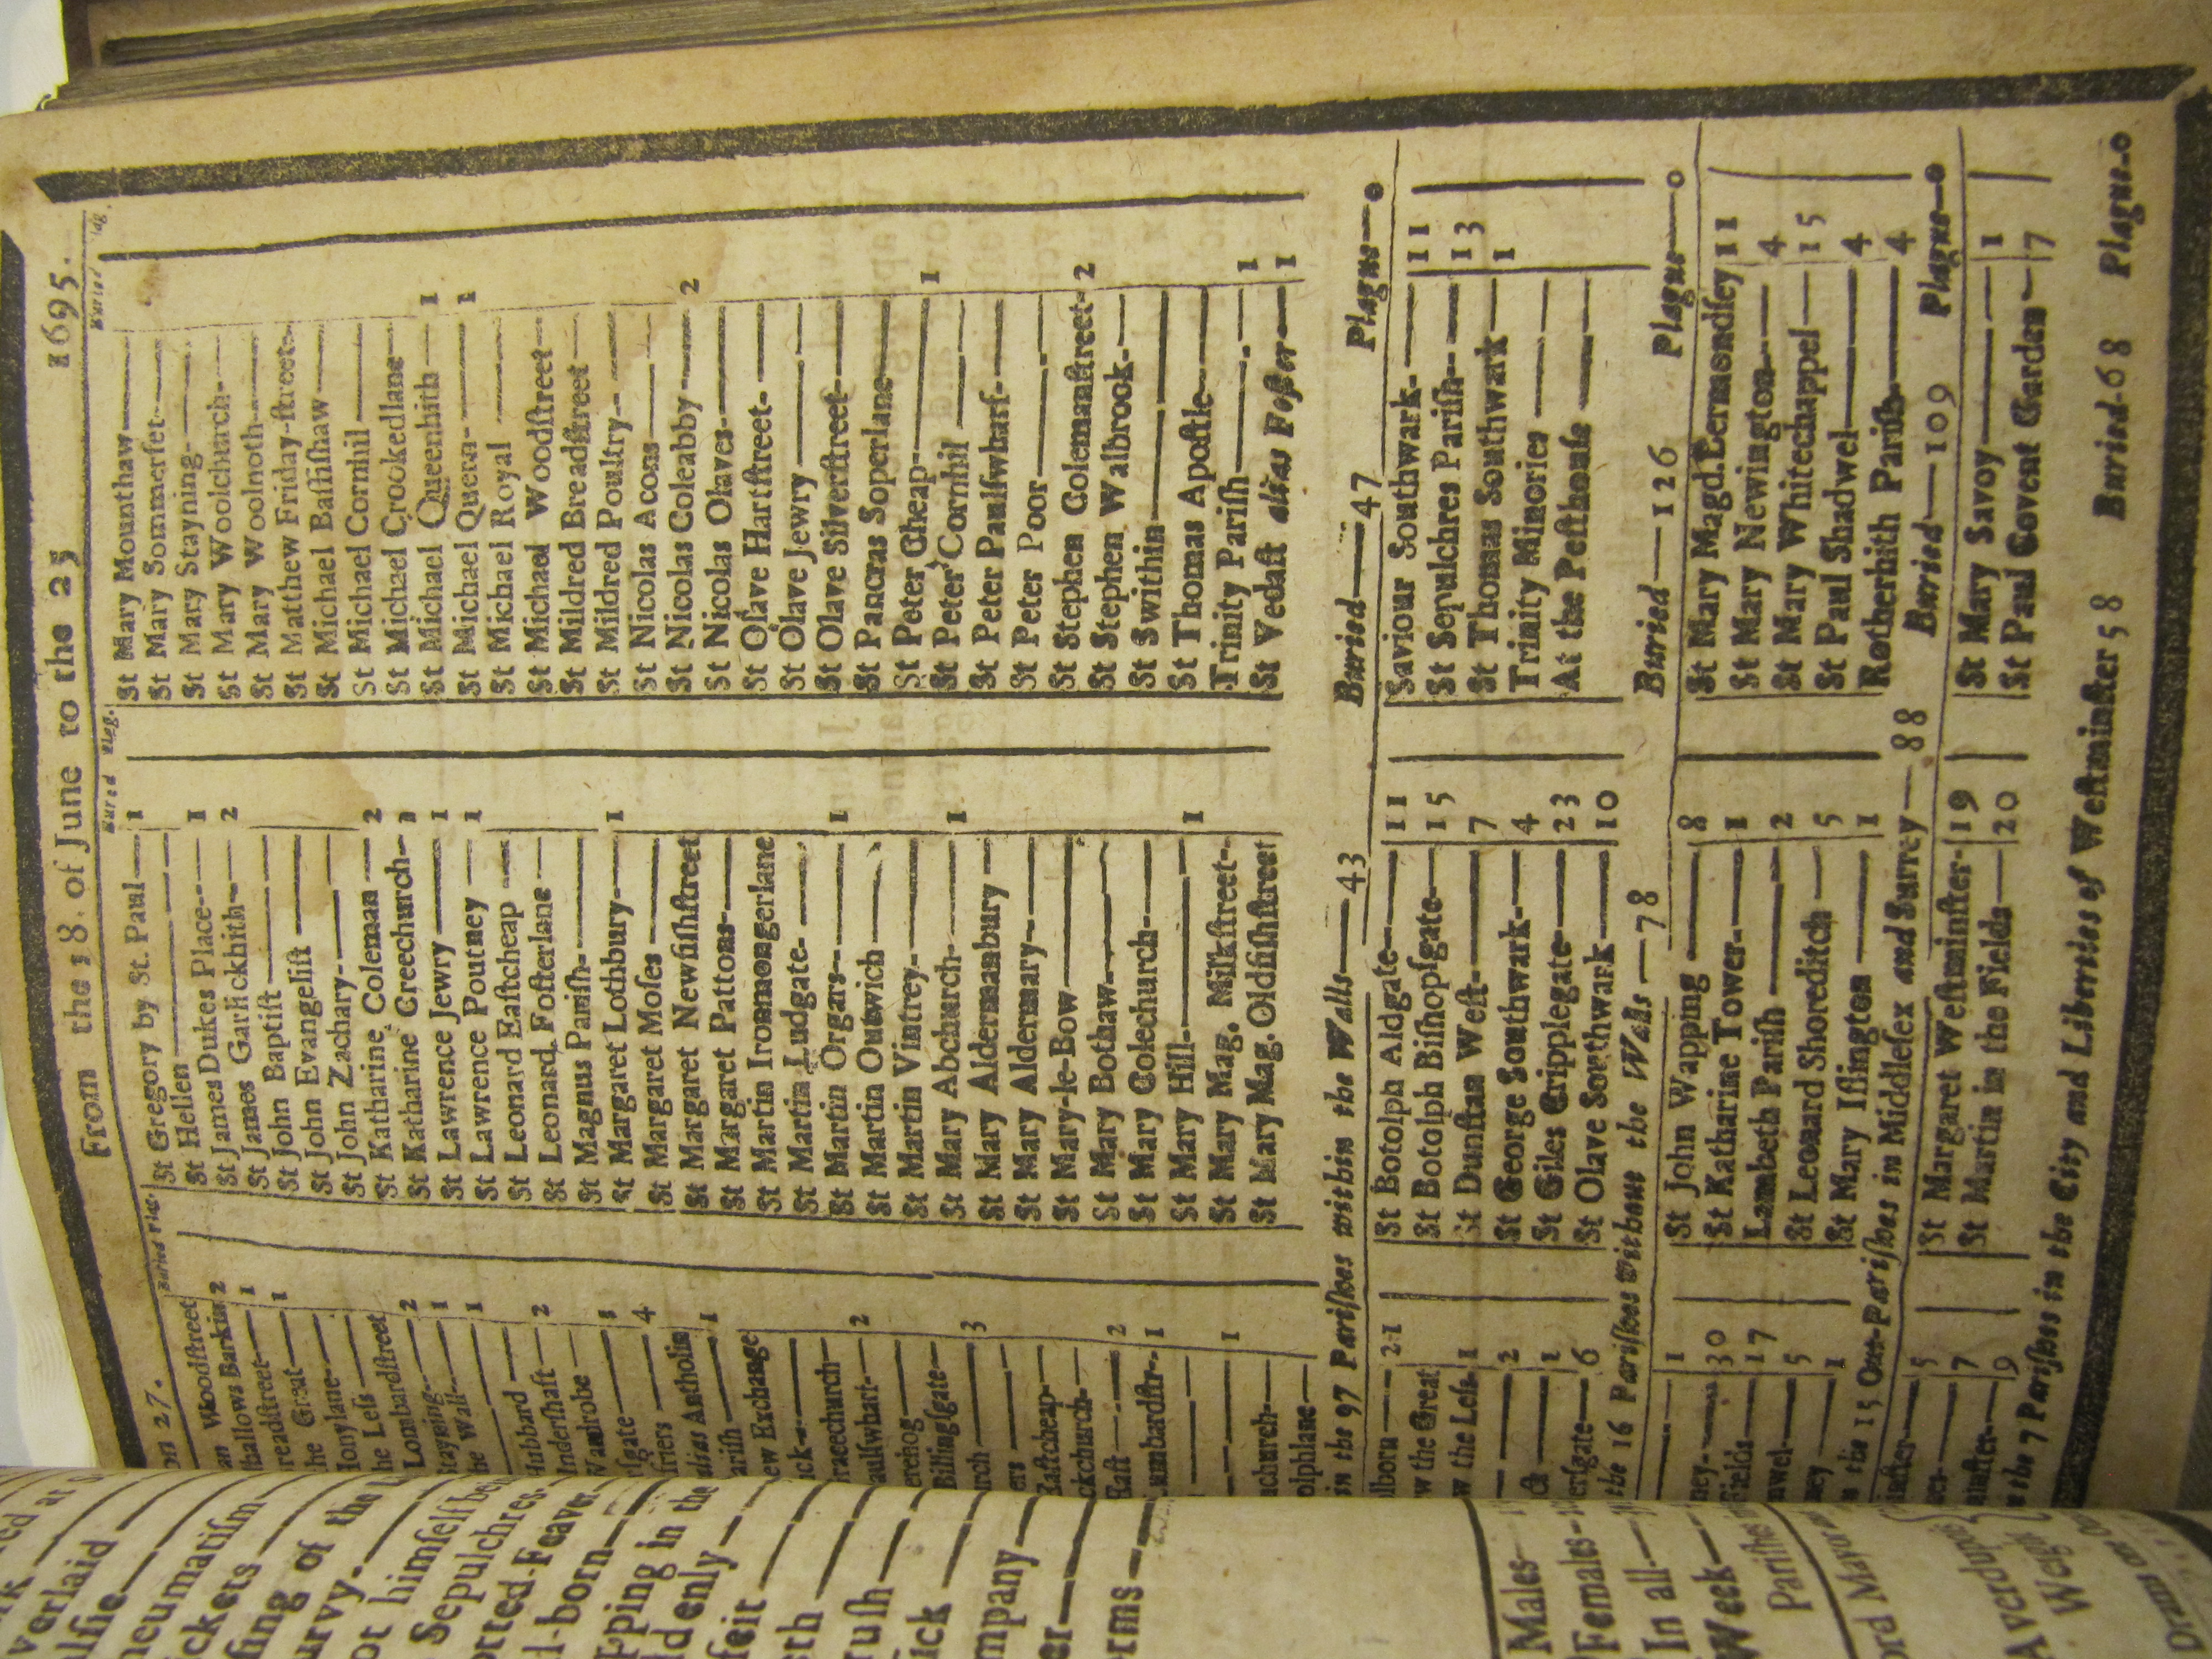 on 27. From the 18. of June to the 25 1695.
Buried Plag. Bured Plag. Buried
Woodstreet
Barkin 2
readstreet 1
he Great 1
Honylane
he Less
Lombardstreet 2
Stayning 1
he Wall 1
Hubbard
Undershaft 2
Wardrobe
rsgate 1
friers 4
alias Antholin 1
arish
ew Exchange
ck
racechurch
aulswharf 2
erehog
Billingsgate
urch 3
ers
Eastcheap
ckchurch
East 2
Lumbardstr. 1
1
uchurch
olphlane
St Gregory by St. Paul 1
St Hellen
St James Dukes Place 1
St James Garlickhith 2
St John Baptist
St John Evangelist
St John Zachary
St Katharine Coleman 2
St Katharine Creechurch 1
St Lawrence Jewry 1
St Lawrence Poutney 1
St Leonard Eastcheap
St Leonard Fosterlane
St Magnus Parish
St Margaret Lothbury 1
St Margaret Moses
St Margaret Newfishstreet
St Margaret Pattons
St Martin Ironmongerlane
St Martin Ludgate
St Martin Orgars 1
St Martin Outwich
St Martin Vintrey
St Mary Abchurch 1
St Mary Aldermanbury
St Mary Aldermary
St Mary-le-Bow
St Mary Bothaw
St Mary Colechurch
St Mary Hill 1
St Mary Mag. Milkstreet
St Mary Mag. Oldfishstreet
St Mary Mounthaw
St Mary Sommerset
St Mary Stayning
St Mary Woolchurch
St Mary Woolnoth
St Matthew Friday-street
St Michael Bassishaw
St Michael Cornhil
St Michael Crookedlane
St Michael Queenhith 1
St Michael Quern 1
St Michael Royal
St Michael Woodstreet
St Mildred Breadstreet
St Mildred Poultry
St Nicolas Acons
St Nicolas Coleabby 2
St Nicolas Olaves
St Olave Hartstreet
St Olave Jewry
St Olave Silverstreet
St Pancras Soperlane
St Peter Cheap 1
St Peter Cornhil
St Peter Paulswharf
St Peter Poor
St Stephen Colemanstreet 2
St Stephen Walbrook
St Swithin
St Thomas Apostle
Trinity Parish 1
St Vedast alias Foster 1
in the 97 Parishes within the Walls 43 Buried 47 Plague 0
lborn 21
w the Great
w the Less 1
2
1
ersgate 6
St Botolph Aldgate 11
St Botolph Bishopsgate 15
St Dunstan West 7
St George Southwark 4
St Giles Cripplegate 23
St Olave Southwark 10
Saviour Southwark 11
St Sepulchres Parish 13
St Thomas Southwark 1
Trinity Minories
At the Pesthouse
the 16 Parishes without the Walls 78 Buried 126 Plague 0
1
ney 30
Fields 17
nwel 5
ney 1
St John Wapping 8
St Katharine Tower 1
Lambeth Parish 2
St Leonard Shoreditch 5
St Mary Islington 1
St Mary Magd. Bermondsey 11
St Mary Newington 4
St Mary Whitechappel 15
St Paul Shadwel 4
Rotherhith Parish 4
the 15 Out-Parishes in Middlesex and Surrey 88 Buried 109 Plague 0
5
7
minster 9
St Margaret Westminster 19
St Martin in the Fields 20
St Mary Savoy 1
St Paul Covent Garden 7
the 7 Parishes in the City and Liberties of Westminster 58 Buried 68 Plague 0
verlaid
alsie
heumatism
ickets
sing of the
urvy
ot himself
Sepulchres
otted-Feaver
l-born
pping in the
d only
feit
eth
rush
ick
mpany
er
orms
Males
Females
In all
Week
Parishes
ord Mayor
Averdupois
Weigh
Drams